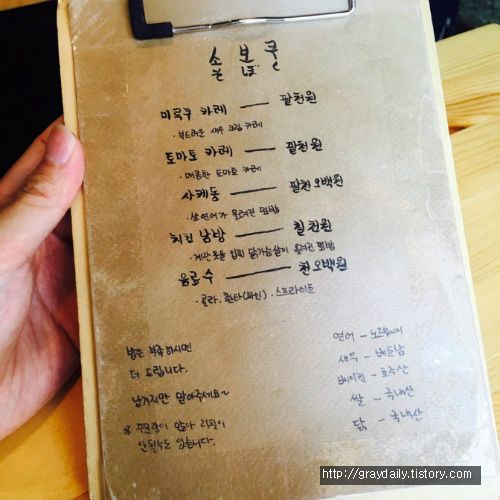 미르쿠 카레 — 팔천원
· 부드러운 새우 크림 카레
토마토 카레 — 팔천원
· 매콤한 토마토 카레
사케동 — 팔천오백원
· 생연어가 올려진 덮밥
치킨 남방 — 칠천원
· 계란옷을 입힌 닭가슴살이 올려진 덮밥
음료수 — 천오백원
· 콜라, 환타(파인), 스프라이트
밥은 부족하시면
더 드립니다.
남기지만 말아주세요~
※ 주문량이 많아 리필이
안될수도 있습니다.
연어 - 노르웨이
새우 - 베트남
베이컨 - 호주산
쌀 - 국내산
닭 - 국내산
http://graydaily.tistory.com